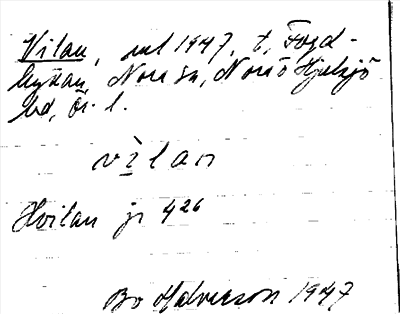 Vilan, nul 1947, t. Fogd-
hyttan, Nora sn, Nora o Hjulsjö
bd, Ör. l.
vilan
Hvilan jr 4²⁶
Bo Halvarson 1947